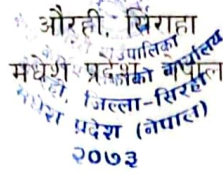 औरही, सिराहा
मधेश प्रदेश, नेपाल
पालिका
को कार्यालय
जिल्ला-सिरहा
प्रदेश (नेपाल)
२०७३